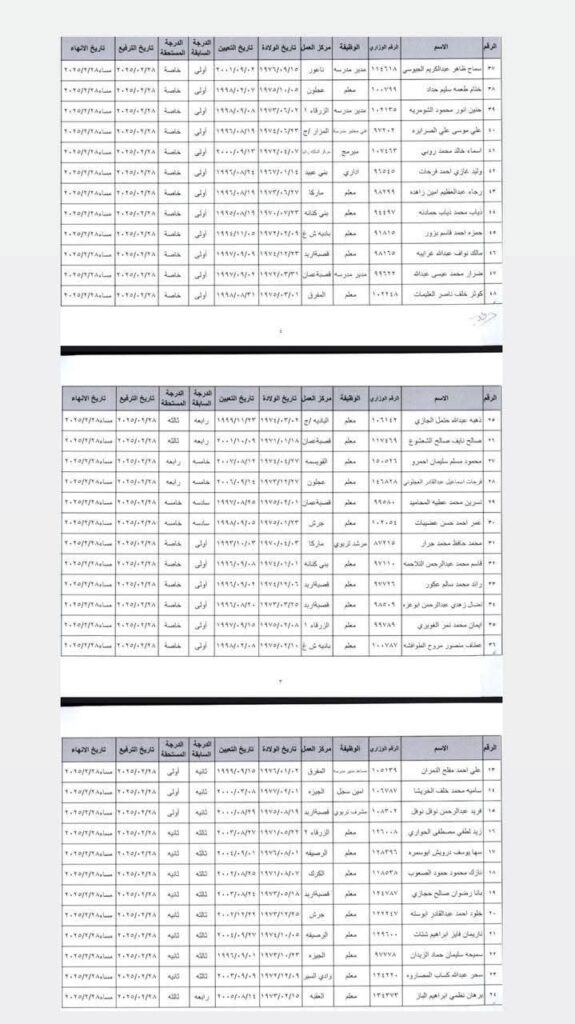 الرقم الاسم الرقم الوزاري الوظيفة مركز العمل تاريخ الولادة تاريخ التعيين الدرجة السابقة الدرجة المستحقة تاريخ الترفيع تاريخ الانهاء
٣٧ سماح ظاهر عبدالكريم العيوسي ١١٤٦١٨ مدير مدرسه ناعور ١٩٧٦/٠٩/١٥ ٢٠٠١/٠٩/٠٢ أولى خاصة ٢٠٢٥/٠٢/٢٨ مساء٢٠٢٥/٢/٢٨
٣٨ ختام طعمه سليم حداد ١٠٠٧٩٩ معلم عجلون ١٩٧٥/١٠/٠٥ ١٩٩٨/٠٢/٠٨ أولى خاصة ٢٠٢٥/٠٢/٢٨ مساء٢٠٢٥/٢/٢٨
٣٩ حنين انور محمود الشومريه ١٠٢١٣٥ مدير مدرسه الزرقاء ١ ١٩٧٣/٠٦/٠٢ ١٩٩٨/٠٩/٠٨ أولى خاصة ٢٠٢٥/٠٢/٢٨ مساء٢٠٢٥/٢/٢٨
٤٠ علي موسى علي الصرايره ٩٧٢٠٢ المزار /ج ١٩٧٤/٠٦/٢٣ ١٩٩٦/٠٨/١٩ أولى خاصة ٢٠٢٥/٠٢/٢٨ مساء٢٠٢٥/٢/٢٨
٤١ اسماء خالد محمد روبي ١٠٧٤٦٣ مبرمج ١٩٧٢/٠٤/٠٧ ٢٠٠٠/٠٩/١٣ أولى خاصة ٢٠٢٥/٠٢/٢٨ مساء٢٠٢٥/٢/٢٨
٤٢ وليد غازي احمد فرحات ٩٦٥٤٥ اداري بني عبيد ١٩٦٧/٠١/١٤ ١٩٩٦/٠٨/٢٤ أولى خاصة ٢٠٢٥/٠٢/٢٨ مساء٢٠٢٥/٢/٢٨
٤٣ رجاء عبدالعظيم امين زاهده ٩٨٢٩٩ معلم ماركا ١٩٧٣/٠٦/٢٧ ١٩٩٧/٠٨/١٠ أولى خاصة ٢٠٢٥/٠٢/٢٨ مساء٢٠٢٥/٢/٢٨
٤٤ ذياب محمد ذياب حمادنه ٩٤٤٩٧ معلم بني كنانه ١٩٧٠/٠٧/٢٣ ١٩٩٥/٠٨/١٩ أولى خاصة ٢٠٢٥/٠٢/٢٨ مساء٢٠٢٥/٢/٢٨
٤٥ حمزه احمد قاسم بزور ٩١٨١٥ معلم باديه ش غ ١٩٧٢/٠٢/٠٩ ١٩٩٤/١١/٠٥ أولى خاصة ٢٠٢٥/٠٢/٢٨ مساء٢٠٢٥/٢/٢٨
٤٦ مالك نواف عبدالله غرايبه ٩٨١٦٥ معلم قصبةاربد ١٩٧٤/١٢/٢٣ ١٩٩٧/٠٩/٠٩ أولى خاصة ٢٠٢٥/٠٢/٢٨ مساء٢٠٢٥/٢/٢٨
٤٧ ضرار محمد عيسى عبدالله ٩٩٦٢٢ مدير مدرسه قصبةعمان ١٩٧٢/٠٣/٣١ ١٩٩٧/٠٩/٠٢ أولى خاصة ٢٠٢٥/٠٢/٢٨ مساء٢٠٢٥/٢/٢٨
٤٨ كوثر خلف ناصر العليمات ١٠٢٢٤٨ معلم المفرق ١٩٧٥/٠٣/٠١ ١٩٩٨/٠٨/٣١ أولى خاصة ٢٠٢٥/٠٢/٢٨ مساء٢٠٢٥/٢/٢٨
٤
الرقم الاسم الرقم الوزاري الوظيفة مركز العمل تاريخ الولادة تاريخ التعيين الدرجة السابقة الدرجة المستحقة تاريخ الترفيع تاريخ الانهاء
٢٥ ذهبه عبدالله حتمل الجازي ١٠٦١٤٢ معلم الباديه /ج ١٩٧٤/٠٣/٠٢ ١٩٩٩/١١/٢٣ رابعه ثالثه ٢٠٢٥/٠٢/٢٨ مساء٢٠٢٥/٢/٢٨
٢٦ صالح نايف صالح الشعشوع ١١٧٤٦٩ معلم قصبةعمان ١٩٧١/٠١/١٨ ٢٠٠١/١٠/٠٩ رابعه ثالثه ٢٠٢٥/٠٢/٢٨ مساء٢٠٢٥/٢/٢٨
٢٧ محمود مسلم سليمان احمرو ١٥٠٥٢٦ معلم القويسمه ١٩٧٤/٠٤/٢٧ ٢٠٠٧/٠٨/١٢ خامسه رابعه ٢٠٢٥/٠٢/٢٨ مساء٢٠٢٥/٢/٢٨
٢٨ فرحات اسماعيل عبدالقادر العجلوني ١٤٦٨٢٨ معلم عجلون ١٩٧٣/١٢/٢٧ ٢٠٠٦/٠٩/١٤ خامسه رابعه ٢٠٢٥/٠٢/٢٨ مساء٢٠٢٥/٢/٢٨
٢٩ نسرين محمد عطيه المحاميد ٩٩٥٨٠ معلم قصبةعمان ١٩٧٥/٠٢/٠١ ١٩٩٧/٠٨/٢٥ سادسه خامسه ٢٠٢٥/٠٢/٢٨ مساء٢٠٢٥/٢/٢٨
٣٠ عمر احمد حسن عضيبات ١٠٢٠٥٤ معلم جرش ١٩٧٥/٠١/٢٣ ١٩٩٨/٠٩/٠٥ سادسه خامسه ٢٠٢٥/٠٢/٢٨ مساء٢٠٢٥/٢/٢٨
٣١ محمد حافظ محمد جرار ٨٧٢١٥ مرشد تربوي ماركا ١٩٧٠/٠٤/٠٣ ١٩٩٣/١٠/٠٣ أولى خاصة ٢٠٢٥/٠٢/٢٨ مساء٢٠٢٥/٢/٢٨
٣٢ قاسم محمد عبدالرحمن التلاحمه ٩٧١١٠ معلم بني كنانه ١٩٧٤/٠١/٠١ ١٩٩٦/٠٩/٠٨ أولى خاصة ٢٠٢٥/٠٢/٢٨ مساء٢٠٢٥/٢/٢٨
٣٣ رائد محمد سالم عكور ٩٧٧٢٦ معلم قصبةاربد ١٩٧٤/١٢/٠٦ ١٩٩٦/٠٩/٠٢ أولى خاصة ٢٠٢٥/٠٢/٢٨ مساء٢٠٢٥/٢/٢٨
٣٤ نضال زهدي عبدالرحمن ابوعزه ٩٨٥٠٩ معلم قصبةاربد ١٩٧٣/٠٣/٢٥ ١٩٩٦/٠٨/٢٠ أولى خاصة ٢٠٢٥/٠٢/٢٨ مساء٢٠٢٥/٢/٢٨
٣٥ ايمان محمد نمر الغويري ٩٩٧٨٩ معلم الزرقاء ١ ١٩٧٥/٠٢/٠٨ ١٩٩٧/٠٩/١٥ أولى خاصة ٢٠٢٥/٠٢/٢٨ مساء٢٠٢٥/٢/٢٨
٣٦ عفاف منصور مروح الطوافشه ١٠٠٧٨٧ معلم باديه ش غ ١٩٧٥/٠٢/١٠ ١٩٩٨/٠٢/٠٨ أولى خاصة ٢٠٢٥/٠٢/٢٨ مساء٢٠٢٥/٢/٢٨
٣
الرقم الاسم الرقم الوزاري الوظيفة مركز العمل تاريخ الولادة تاريخ التعيين الدرجة السابقة الدرجة المستحقة تاريخ الترفيع تاريخ الانهاء
١٣ علي احمد مفلح النمران ١٠٥١٣٩ مساعد مدير مدرسة المفرق ١٩٧٦/٠١/٠٢ ١٩٩٩/٠٩/١٥ ثانيه أولى ٢٠٢٥/٠٢/٢٨ مساء٢٠٢٥/٢/٢٨
١٤ ساميه محمد خلف الخريشا ١٠٦٧٨٧ امين سجل الجيزه ١٩٧٧/٠٩/٠١ ٢٠٠٠/٠٣/٠٨ ثانيه أولى ٢٠٢٥/٠٢/٢٨ مساء٢٠٢٥/٢/٢٨
١٥ فريد عبدالرحمن نوفل نوفل ١٠٨٣٠٢ مشرف تربوي قصبةاربد ١٩٧٥/٠٨/١٩ ٢٠٠٠/٠٨/٢٩ ثانيه أولى ٢٠٢٥/٠٢/٢٨ مساء٢٠٢٥/٢/٢٨
١٦ زيد لطفي مصطفى الحواري ١٢٦٠٠٨ معلم الزرقاء ٢ ١٩٧١/٠٥/٢٢ ٢٠٠٣/٠٨/٢٧ ثالثه ثانيه ٢٠٢٥/٠٢/٢٨ مساء٢٠٢٥/٢/٢٨
١٧ سها يوسف درويش ابوسمره ١٢٨٣٩٦ معلم الرصيفه ١٩٧٦/٠٨/٠١ ٢٠٠٤/٠٩/٠١ ثالثه ثانيه ٢٠٢٥/٠٢/٢٨ مساء٢٠٢٥/٢/٢٨
١٨ نازك محمود حمود الصعوب ١١٨٥٣٨ معلم الكرك ١٩٧١/٠٨/٠٧ ٢٠٠٢/٠٨/٢٥ ثالثه ثانيه ٢٠٢٥/٠٢/٢٨ مساء٢٠٢٥/٢/٢٨
١٩ بانا رضوان صالح حجازي ١٢٤٧٨٧ معلم قصبةاربد ١٩٧٣/٠٥/١٨ ٢٠٠٣/٠٨/٢٤ ثالثه ثانيه ٢٠٢٥/٠٢/٢٨ مساء٢٠٢٥/٢/٢٨
٢٠ خلود احمد عبدالقادر ابوسته ١٢٢٢٤٧ معلم جرش ١٩٧٣/١٢/٢٥ ٢٠٠٢/١٢/٢٢ ثالثه ثانيه ٢٠٢٥/٠٢/٢٨ مساء٢٠٢٥/٢/٢٨
٢١ ناريمان فايز ابراهيم شتات ١٢٩٦٠٠ معلم الرصيفه ١٩٧٤/١٠/٠٥ ٢٠٠٤/٠٩/٢٧ ثالثه ثانيه ٢٠٢٥/٠٢/٢٨ مساء٢٠٢٥/٢/٢٨
٢٢ سميحه سليمان حماد الزيدان ٩٧٧٧٨ معلم الجيزه ١٩٧٣/١٠/٢٣ ١٩٩٦/٠٩/٠١ ثالثه ثانيه ٢٠٢٥/٠٢/٢٨ مساء٢٠٢٥/٢/٢٨
٢٣ سحر عبدالله كساب المصاروه ١٢٤٢٢٠ معلم وادي السير ١٩٧٢/١٢/٠٩ ٢٠٠٣/٠٩/٠٩ ثالثه ثانيه ٢٠٢٥/٠٢/٢٨ مساء٢٠٢٥/٢/٢٨
٢٤ برهان نظمي ابراهيم الباز ١٣٤٣٧٣ معلم العقبه ١٩٧٣/٠٢/١٥ ٢٠٠٥/٠٨/١٤ رابعه ثالثه ٢٠٢٥/٠٢/٢٨ مساء٢٠٢٥/٢/٢٨